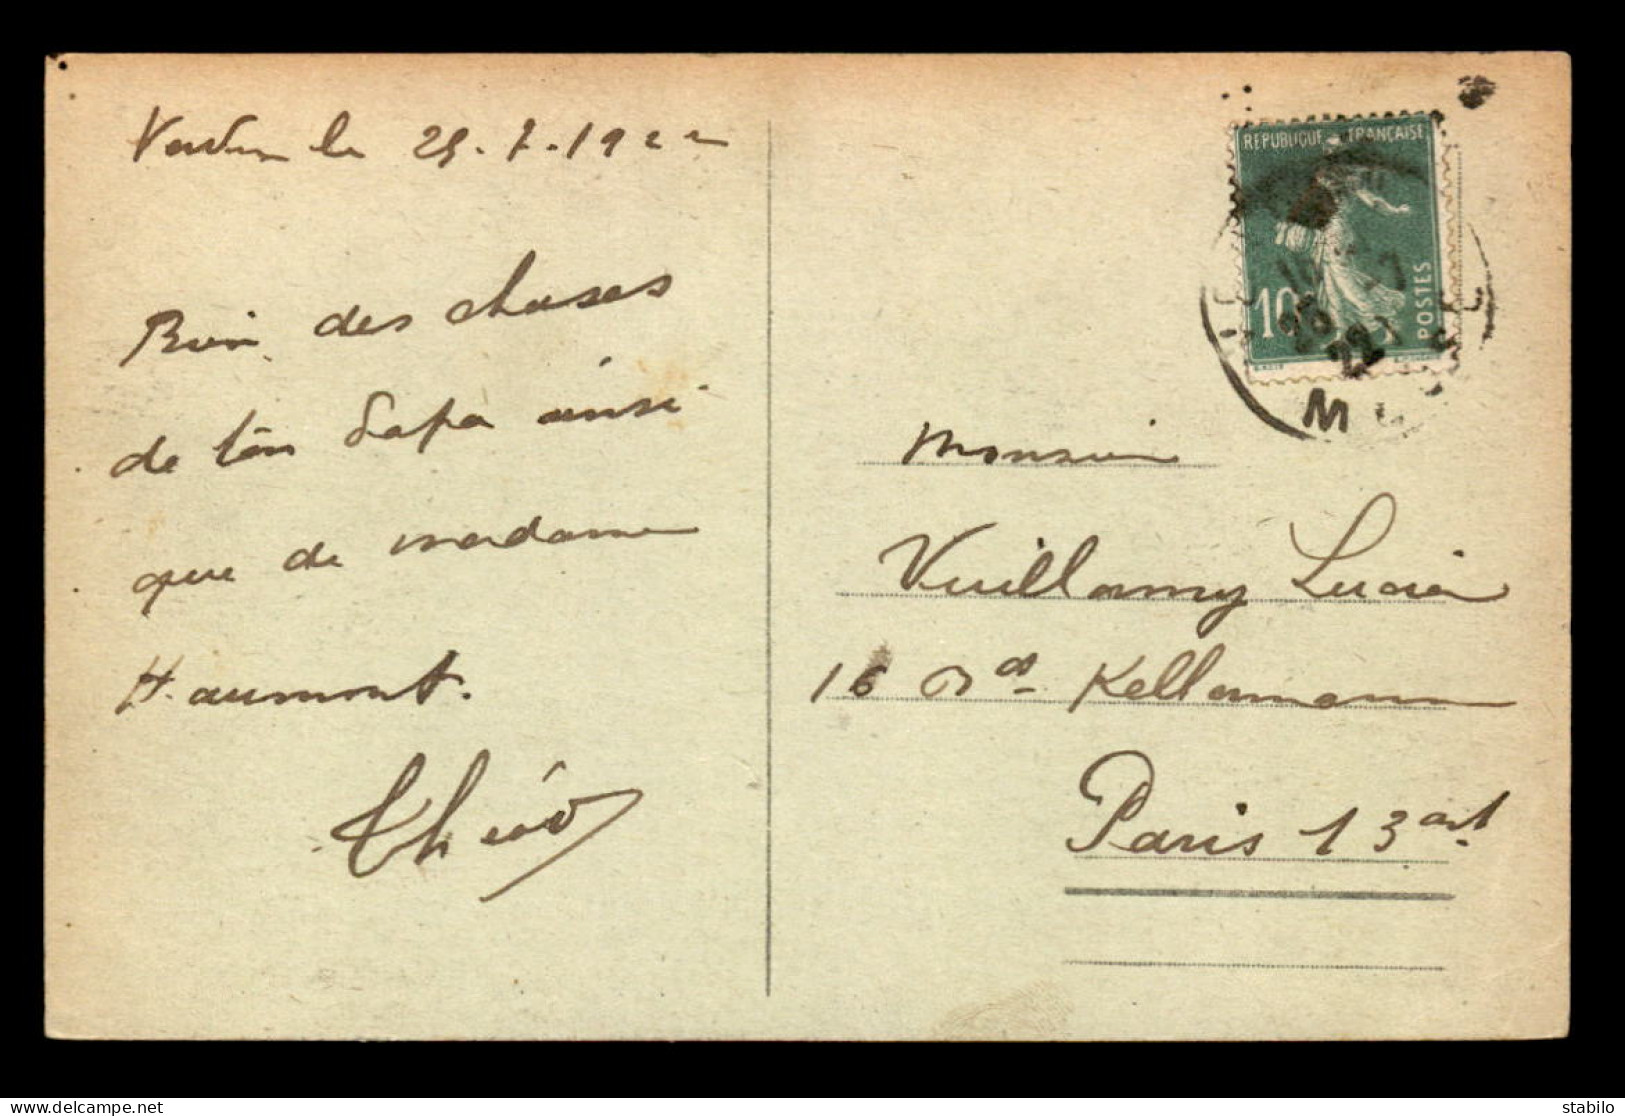 Verdun le 25.7.1922
Bien des choses
de ton Papa ainsi
que de madame
Haumont.
Théo
REPUBLIQUE FRANÇAISE
10
POSTES
22
M
Monsieur
Vuillamy Lucien
16 Bd Kellermann
Paris 13 art
stabilo_photo